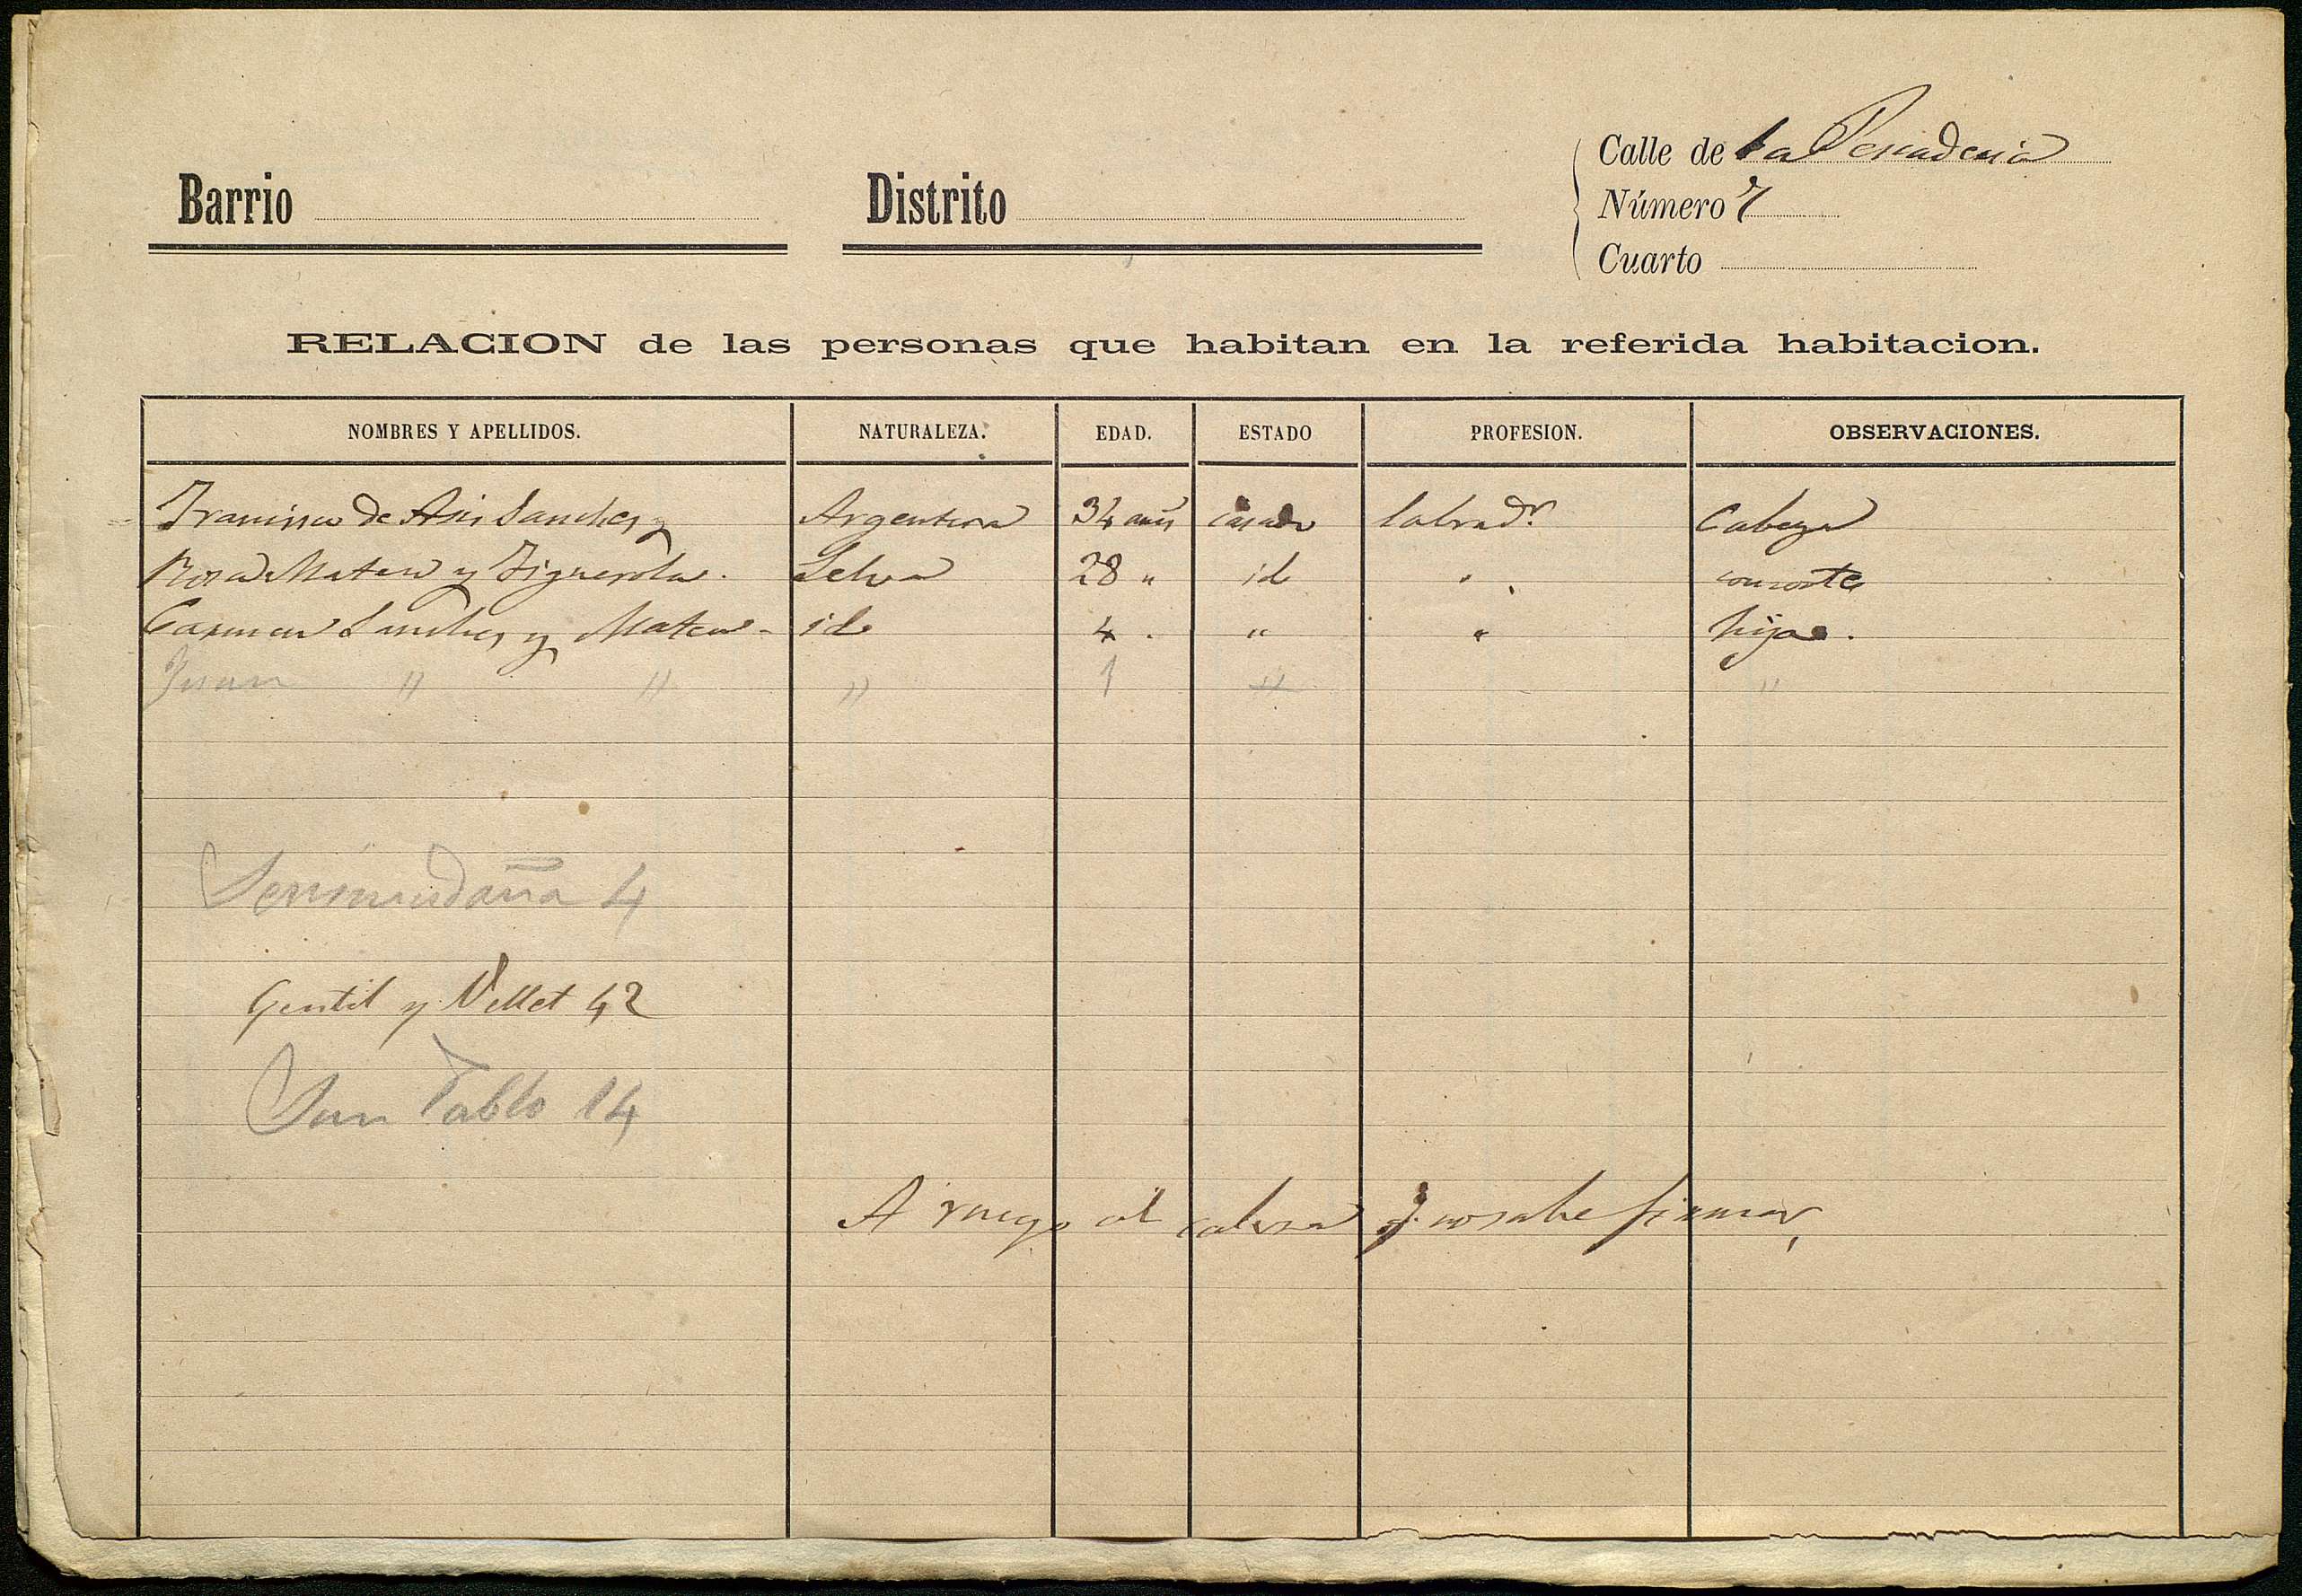 Calle de la Pescaderia
Barrio Distrito Número 7
Cuarto
RELACION de las personas que habitan en la referida habitacion.
NOMBRES Y APELLIDOS. NATURALEZA. EDAD. ESTADO PROFESION. OBSERVACIONES.
Francisco de Asis Sanchez y Argentera 34 años casado labradr. Cabeza
Rosa Mateu y Figuerola. Selva 28 " id " consorte
Carmen Sanchez y Mateu - id 4 . " " hija.
Juan " " " 1 " "
4
Gentil y Vellet 42
San Pablo 14
A ruego del cabeza q. no sabe firmar,